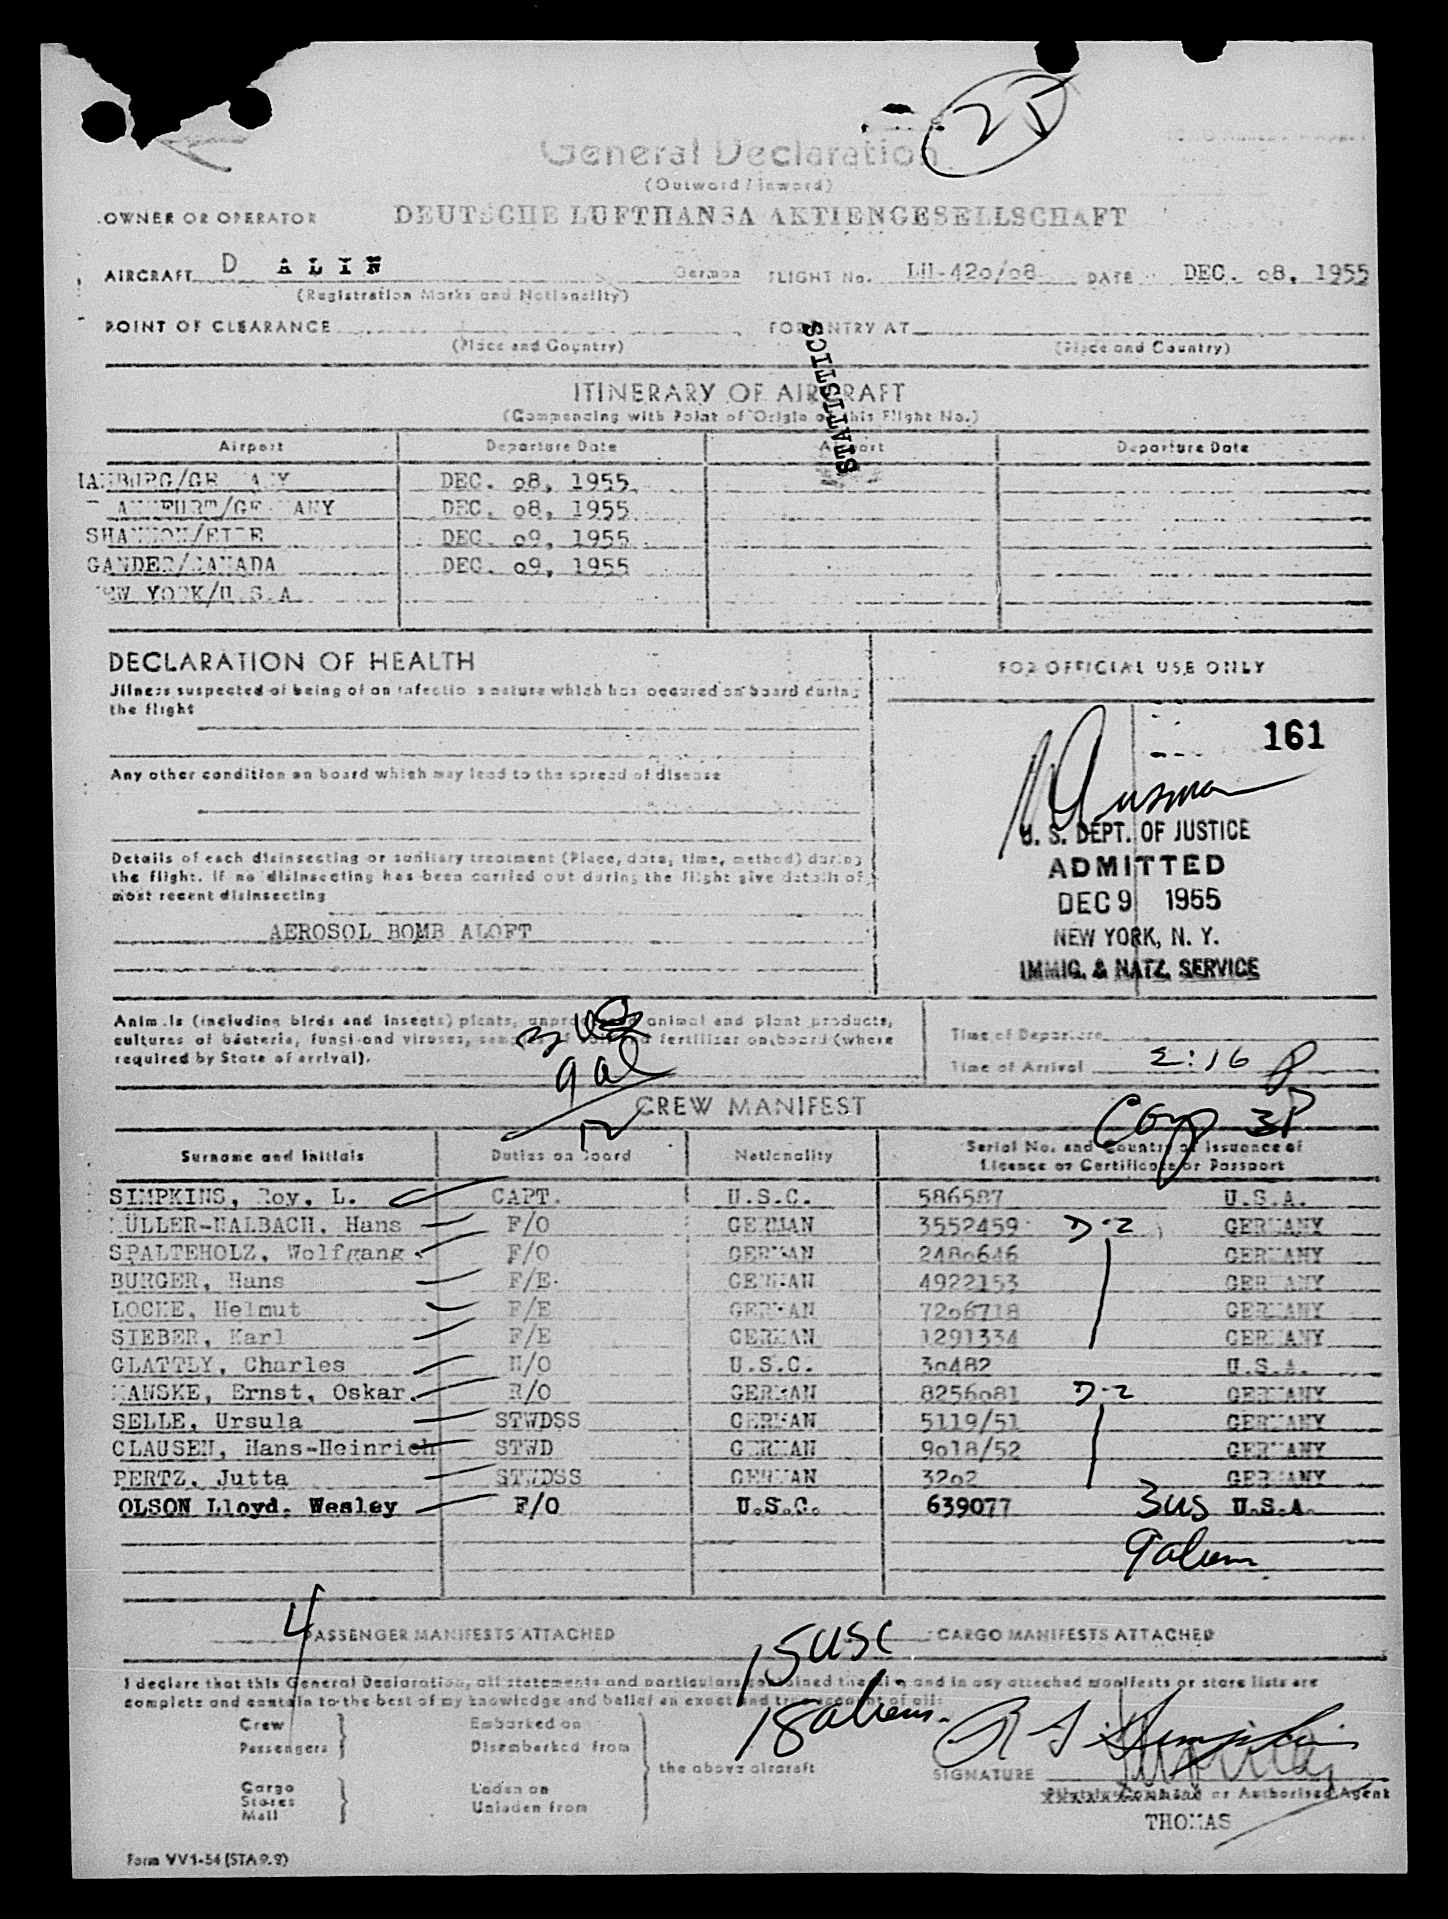 25
General Declaration
(Outward / Inward)
OWNER OR OPERATOR DEUTSCHE LUFTHANSA AKTIENGESELLSCHAFT
AIRCRAFT D ALIN German FLIGHT No. LH-42o/o8 DATE DEC. o8, 1955
(Registration Marks and Nationality)
POINT OF CLEARANCE FOR ENTRY AT
(Place and Country) (Place and Country)
STATISTICS
ITINERARY OF AIRCRAFT
(Commencing with Point of Origin of this Flight No.)
Airport Departure Date Airport Departure Date
HAMBURG/GERMANY DEC. o8, 1955
FRANKFURT/GERMANY DEC. o8, 1955
SHANNON/EIRE DEC. o9, 1955
GANDER/CANADA DEC. o9, 1955
NEW YORK/U.S.A.
DECLARATION OF HEALTH
Jilness suspected of being of an infectious nature which has occured on board during
the flight
Any other condition on board which may lead to the spread of disease
Details of each disinsecting or sanitary treatment (Place, date, time, method) during
the flight. If no disinsecting has been carried out during the flight give details of
most recent disinsecting
AEROSOL BOMB ALOFT
FOR OFFICIAL USE ONLY
161
U. S. DEPT. OF JUSTICE
ADMITTED
DEC 9 1955
NEW YORK, N. Y.
IMMIG. & NATZ. SERVICE
Animals (including birds and insects) plants, unprocessed animal and plant products,
cultures of bacteria, fungi and viruses, samples of soil and fertilizer on board (where
required by State of arrival).
3 USC
9 al
12
Time of Departure
Time of Arrival 2:16 P
CREW MANIFEST
Cory 3P
Surname and Initials Duties on board Nationality Serial No. and Country of Issuance of
Licence or Certificate or Passport
SIMPKINS, Roy, L. CAPT. U.S.C. 586587 U.S.A.
MÜLLER-NALBACH, Hans F/O GERMAN 3552459 D-2 GERMANY
SPALTEHOLZ, Wolfgang F/O GERMAN 248o646 GERMANY
BURGER, Hans F/E GERMAN 4922153 GERMANY
LOCKE, Helmut F/E GERMAN 72o6718 GERMANY
SIEBER, Karl F/E GERMAN 1291334 GERMANY
GLATTLY, Charles N/O U.S.C. 3o482 U.S.A.
MANSKE, Ernst, Oskar. R/O GERMAN 8256o81 D-2 GERMANY
SELLE, Ursula STWDSS GERMAN 5119/51 GERMANY
CLAUSEN, Hans-Heinrich STWD GERMAN 9o18/52 GERMANY
PERTZ, Jutta STWDSS GERMAN 32o2 GERMANY
OLSON Lloyd, Wesley F/O U.S.C. 639077 3us U.S.A.
9 alien
4 PASSENGER MANIFESTS ATTACHED CARGO MANIFESTS ATTACHED
15 USC
18 aliens.
I declare that this General Declaration, all statements and particulars contained therein and in any attached manifests or store lists are
complete and contain to the best of my knowledge and belief an exact and true account of all:
Crew Embarked on
Passengers Disembarked from
the above aircraft
Cargo Laden on
Stores Unladen from
Mail
R L Simpkins
SIGNATURE
Pilot in Command or Authorised Agent
THOMAS
Form VV1-54 (STA 9.9)